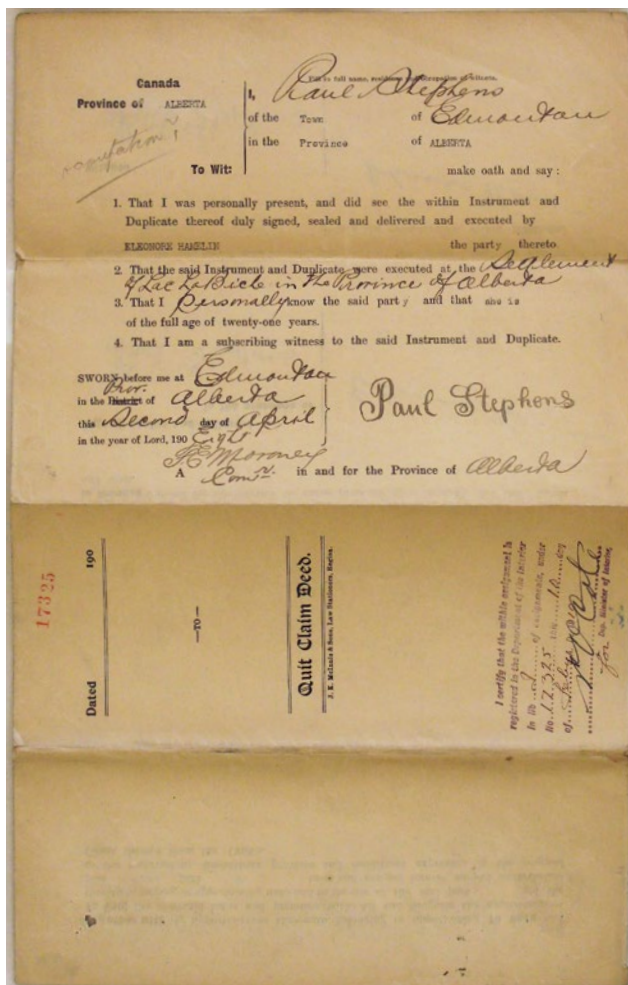 Canada
Province of ALBERTA
To Wit:
I, Paul Stephens
of the Town of Edmonton
in the Province of ALBERTA
make oath and say:
1. That I was personally present, and did see the within Instrument and
Duplicate thereof duly signed, sealed and delivered and executed by
ELEONORE HAMELIN the party thereto
2. That the said Instrument and Duplicate were executed at the Settlement
of Lac La Biche in the Province of Alberta
3. That I personally know the said party and that she is
of the full age of twenty-one years.
4. That I am a subscribing witness to the said Instrument and Duplicate.
SWORN before me at Edmonton
in the District Prov. of Alberta
this Second day of April
in the year of Lord, 190 Eight
Paul Stephens
A Comr in and for the Province of Alberta
17325
Dated 190
—TO—
Quit Claim Deed.
J. K. McInnis & Sons, Law Stationers, Regina.
I certify that the within assignment is
registered in the Department of the Interior
in lib of assignments, under
No. 17325 this 10 day
of
for Dep. Minister of Interior.